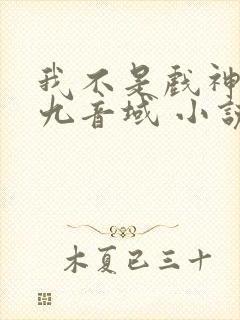 我不是戏神
九音域 小说
木夏已三十